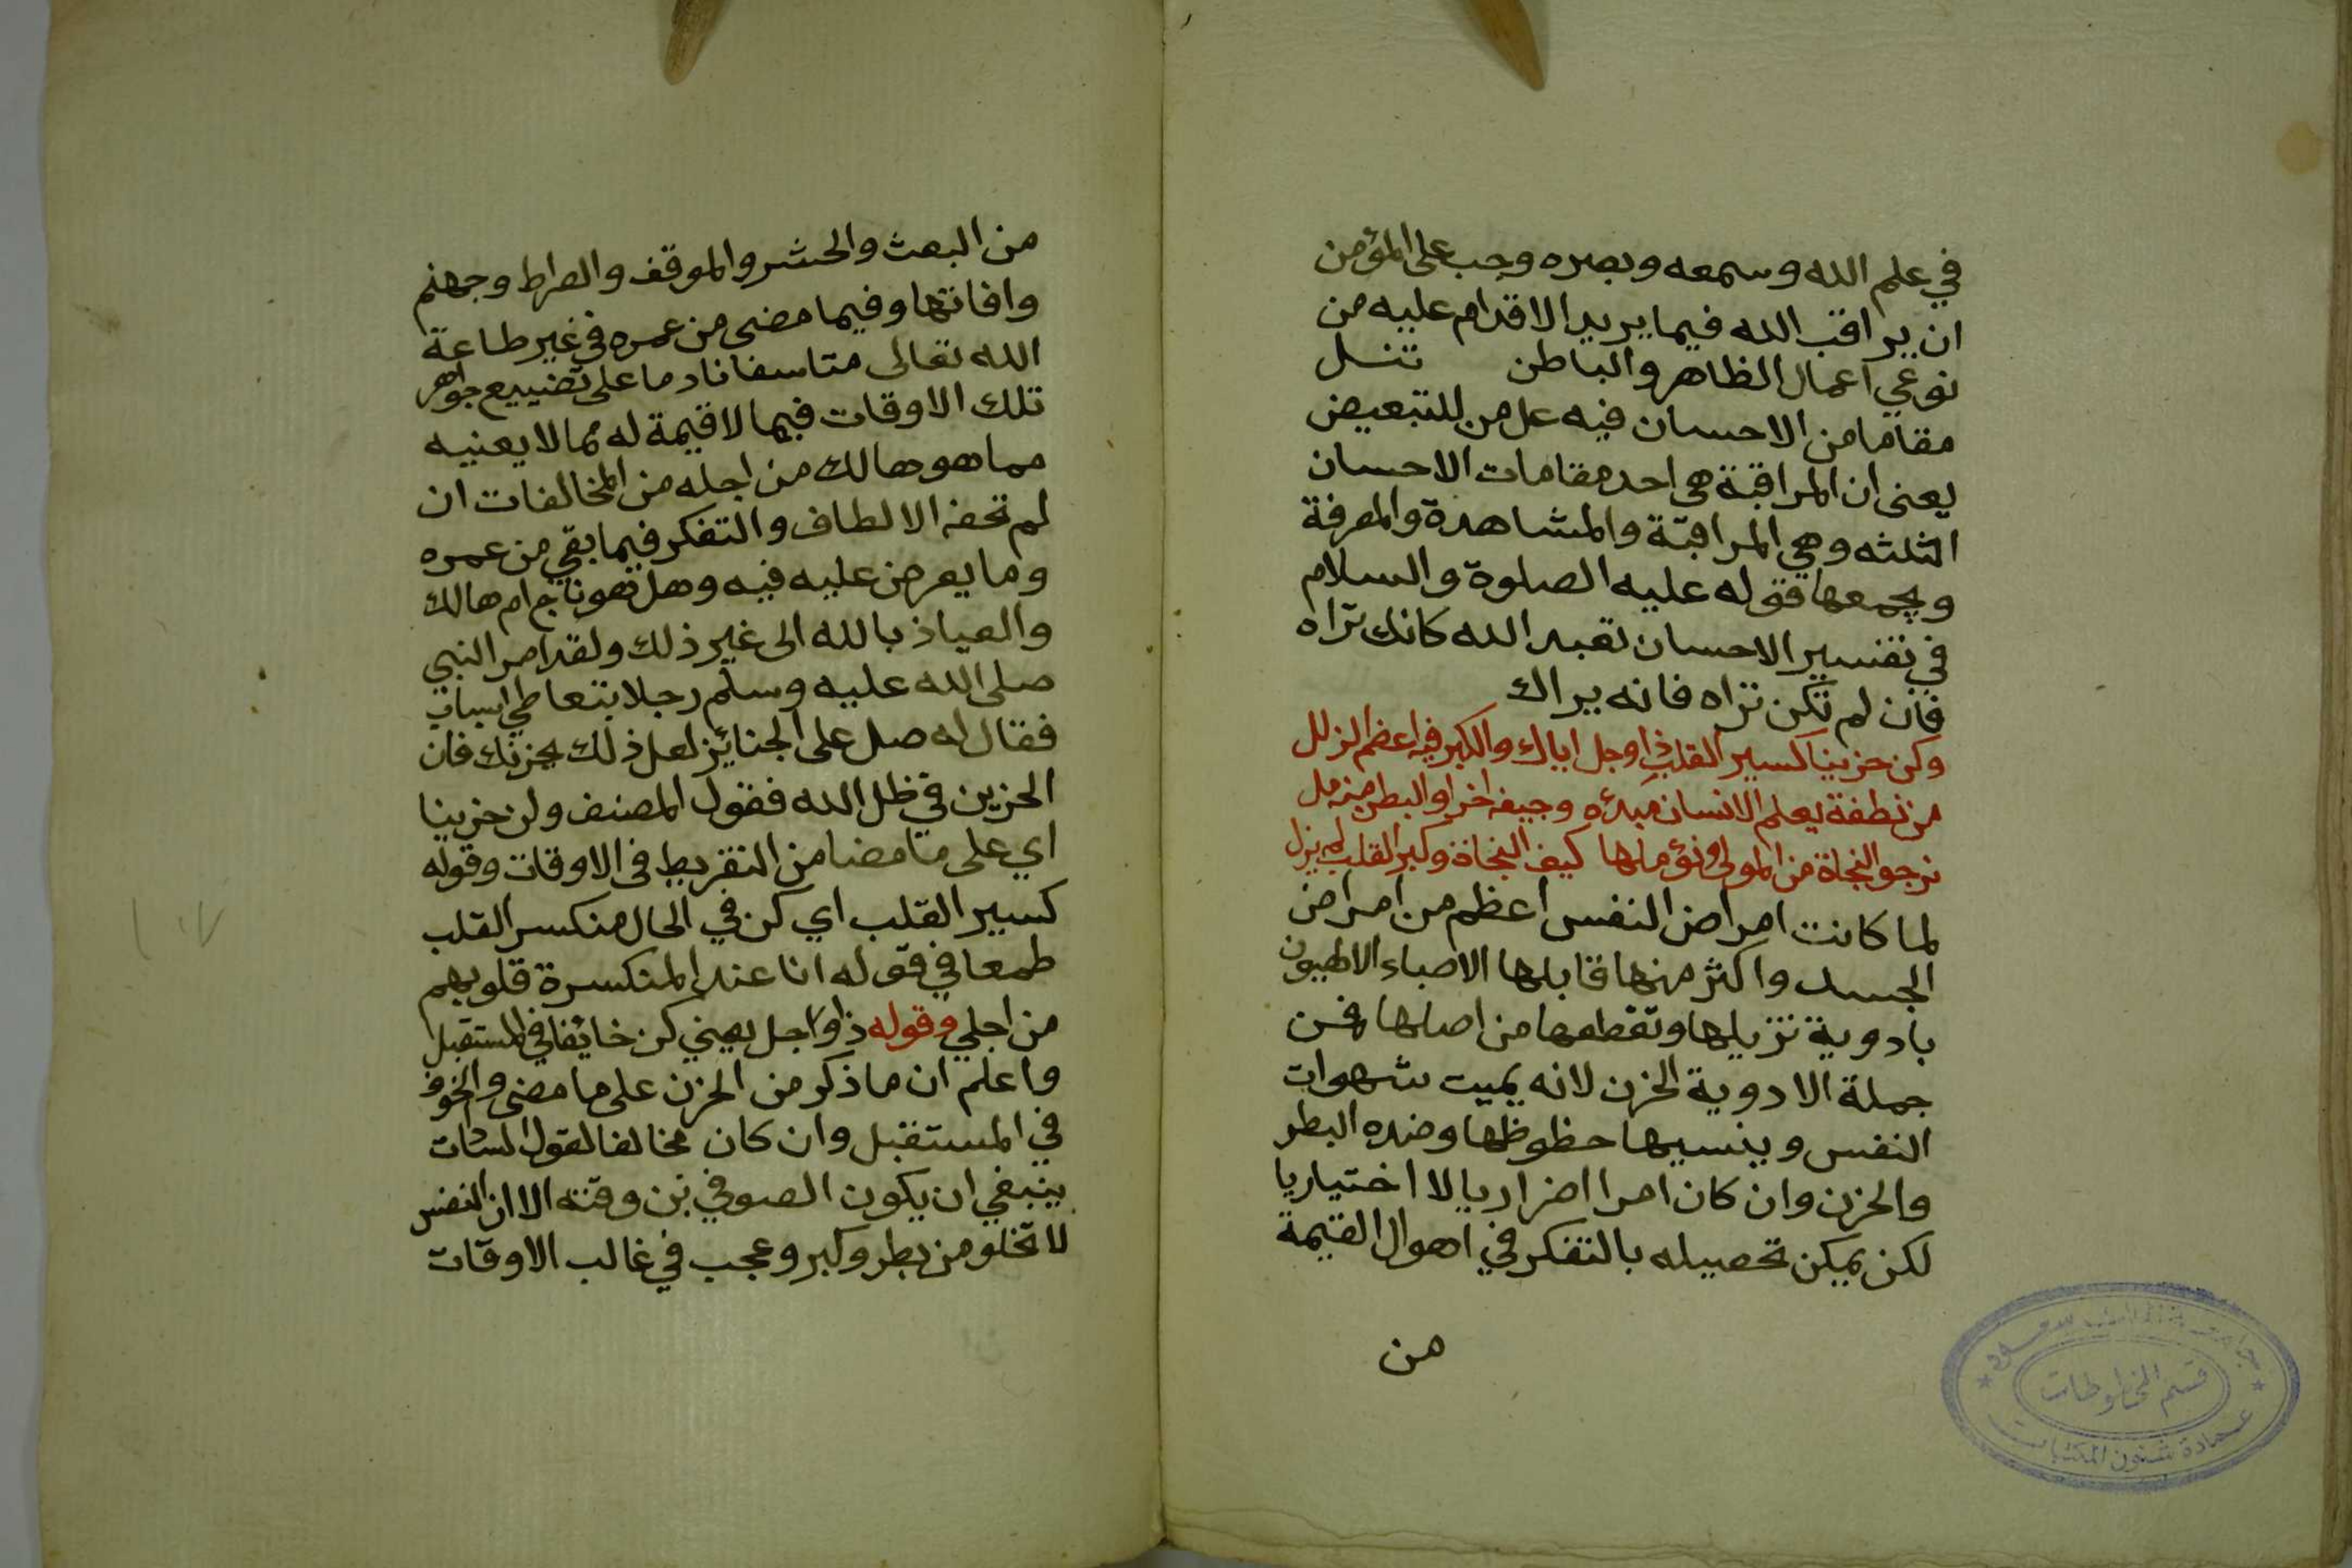 في علم الله وسمعه وبصره وجب على المؤمن
ان يراقب الله فيما يريد الاقدام عليه من
نوعي اعمال الظاهر والباطن تنل
مقاما من الاحسان فيه عل من للتبعيض
يعنى ان المراقبة هي احد مقامات الاحسان
الثلثه وهي المراقبة والمشاهدة والمعرفة
ويجمعها قوله عليه الصلوة والسلام
في تفسير الاحسان تعبد الله كانك تراه
فان لم تكن تراه فانه يراك
وكن حزينا كسير القلب ذا وجل اياك والكبر فيه اعظم الزلل
من نطفة يعلم الانسان مبدئه وجيفه اخرا والبطر منه مل
نرجو النجاة من المولى ونؤملها كيف النجاة وكبر القلب لم يزل
لما كانت امراض النفس اعظم من امراض
الجسد واكثر منها قابلها الاصباء الالهيون
بادوية تزيلها وتقطعها من اصلها فمن
جملة الادوية الحزن لانه يميت شهوات
النفس وينسيها حظوظها وضده البطر
والحزن وان كان امرا اضراريا لا اختياريا
لكن يمكن تحصيله بالتفكر في اهوال القيمة
من
جامعة الملك سعود
قسم المخطوطات
عمادة شئون المكتبات
من البعث والحشر والموقف والصراط وجهنم
وافاتها وفيما مضى من عمره في غير طاعة
الله تعالى متاسفا نادما على تضييع جواهر
تلك الاوقات فيما لا قيمة له مما لا يعنيه
مما هو هالك من اجله من المخالفات ان
لم تحفه الالطاف والتفكر فيما بقي من عمره
وما يعرض عليه فيه وهل هو ناج ام هالك
والعياذ بالله الى غير ذلك ولقد امر النبي
صلى الله عليه وسلم رجلا يتعاطى
فقال له صل على الجنائز لعل ذلك يحزنك فان
الحزين في ظل الله فقول المصنف وكن حزينا
اي على ما مضا من التفريط في الاوقات وقوله
كسير القلب اي كن في الحال منكسر القلب
طمعا في قوله انا عند المنكسرة قلوبهم
من اجلي وقوله ذا وجل يعني كن خائفا في المستقبل
واعلم ان ما ذكر من الحزن على ما مضى والخوف
في المستقبل وان كان مخالفا لقول السادات
ينبغي ان يكون الصوفي بن وقته الا ان النفس
لا تخلو من بطر وكبر وعجب في غالب الاوقات